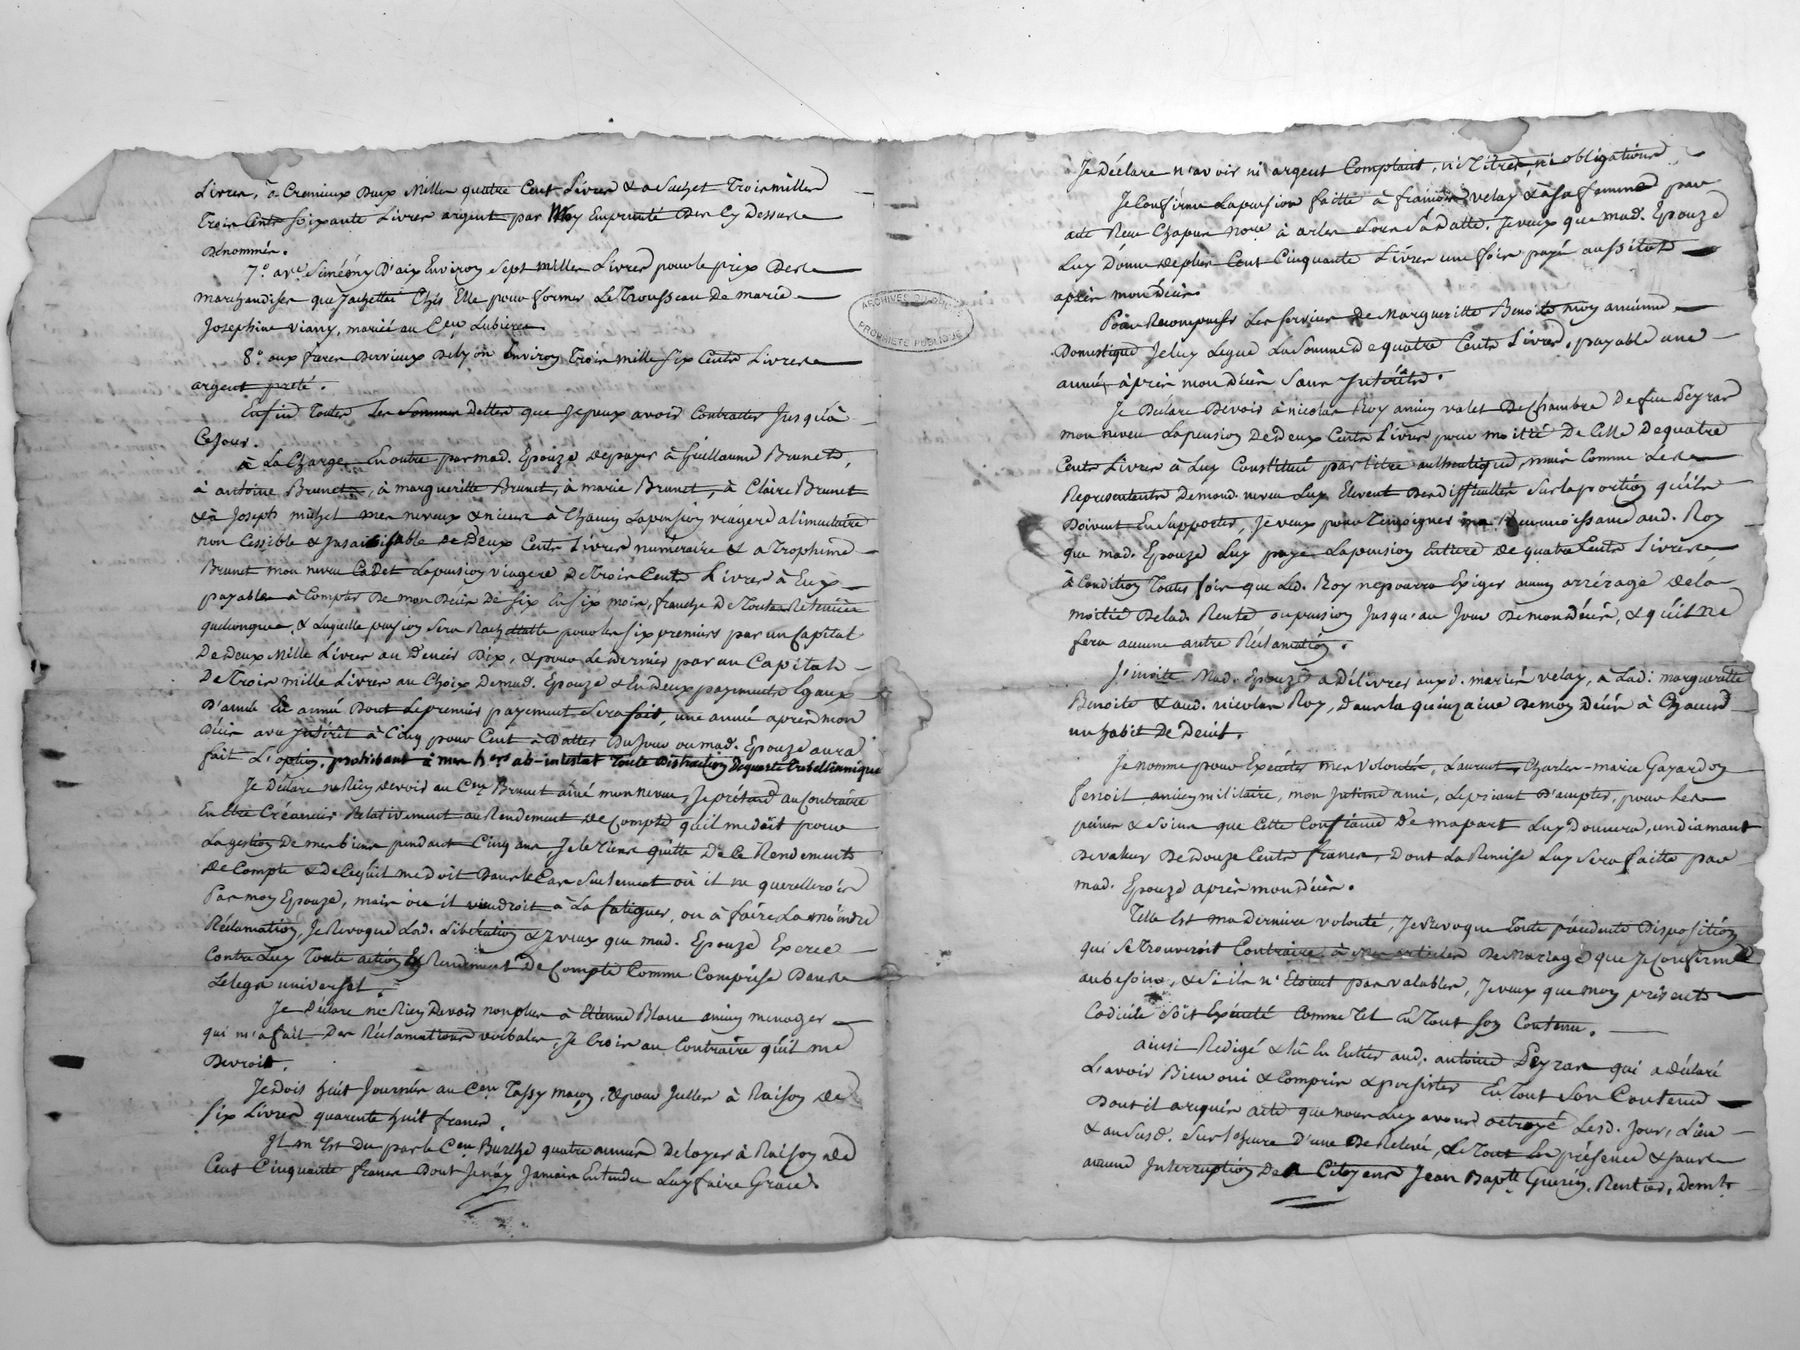 Livres, à Cremieux Deux Milles quatre Cent Livres & a Sachet Trois milles
Trois Cents soixante Livres argent par Moy Emprunté Des Cy Dessus
Dénommés.
7.° a Siméony D'aix Environ Sept milles Livres pour le prix Des
marchandises que J'achettai Chés Elle pour former Le Trousseau de marie
Josephine viany, mariée au C.en Lubieres
8.° aux freres Dervieux De Lyon Environ Trois mille six Cents Livres
argent preté.
Enfin Toutes Les Sommes Dettes que Je peux avoir Contractés Jusqu'à
Ce Jour.
à La Charge En outre par mad. Epouze de payer à Guillaume Brunet,
à antoine Brunet, à margueritte Brunet, à marie Brunet, à Claire Brunet
& à Joseph michel mes neveux & nieces à Chacun La pension viagere alimentaire
non Cessible & Insaisissable de Deux Cents Livres numéraire & a Trophime
Brunet mon neveu Cadet La pension viagere De Trois Cents Livres à Eux
payables à Compter De mon Décès De Six En Six mois, franche De Toutes Retenües
quelconques, & Laquelle pension Sera Rachettable pour les six premiers par un Capital
De Deux Mille Livres au Deniers Dix, & pour Le Dernier par un Capital
De Trois mille Livres au Choix De mad. Epouze & En Deux payements Egaux
D'année En année Dont Le premier payement Sera fait, une année après mon
Décès avec Intérêt à Cinq pour Cent à Datter Du Jour ou mad. Epouze aura
fait L'option, prohibant à mes h.ers ab-intestat Toute Distraction De quarte Trebellianique
Je Déclare ne Rien devoir au C.en Brunet aîné mon neveu, Je prétend au Contraire
En être Créancier Relativement au Rendement de Compte qu'il me doit pour
La gestion De mes biens pendant Cinq ans, Je le Tiens quitte De Ce Rendement
de Compte & de Ce qu'il me doit Dans le Cas Seulement où il ne querelleroit
Pas moy Epouze, mais où il viendroit à La fatiguer, ou à faire La moindre
Réclamation, Je Revoque Lad. Libération & Je veux que mad. Epouze Exerce
Contre Luy Toute action En Rendement De Compte Comme Comprise Dans
Le legs universel.
Je Déclare ne Rien Devoir non plus à Etienne Blanc ancien menager
qui m'a fait Des Réclamations verbales, Je Crois au Contraire qu'il me
Devroit.
Je Dois huit Journées au C.en Tassy maçon, & pour Juller à Raison de
Six Livres quarente huit francs.
Il m'Est Du par le C.en Barthe quatre années De loyer à Raison de
Cent Cinquante francs Dont Je n'ay Jamais Entendu Luy faire Grace.
ARCHIVES
PROPRIETE PUBLIQUE
Je Déclare n'avoir ni argent Comptant, ni Titres, ni obligations
Je Confirme La pension faitte à françois velay & à sa femme par
acte Reçu Chapus no.re à arles Sous Sa Datte. Je veux que mad. Epouze
Luy Donne de plus Cent Cinquante Livres une fois payé aussitot
après mon Décès
Pour Recompenser Les Services de Margueritte Benoite moy ancienne
Domestique Je luy Legue La Somme de quatre Cents Livres, payable une
année après mon Décès Sans Intérêts.
Je Déclare Devoir à nicolas Roy ancien valet De Chambre De feu Peyras
mon neveu La pension De Deux Cents Livres pour moitié De Celle De quatre
Cents Livres à Luy Constitué par titre authentique, mais Comme Les
Representents De mond. neveu Luy Elevent Des difficultés Sur la portion qu'ils
Doivent En Supporter, Je veux pour Temoigner ma Reconnoissance aud. Roy
que mad. Epouze Luy paye La pension Entiere de quatre Cents Livres
à Condition Toutes fois que Led. Roy ne pourra Exiger aucun arrérage de la
moitié De lad. Rente ou pension Jusqu'au Jour De mon Décès, & qu'il ne
fera aucune autre Réclamation.
J'invite Mad. Epouze a Délivrer aux d. mariés velay, à Lad: margueritte
Benoite & aud. nicolas Roy, Dans la quinzaine De moy Décès à Chacun
un habit De Deuil.
Je nomme pour Exécuter mes volontés, Laurent Charles-marie Gayardon
fenoil ancien militaire, mon Intime ami, Le priant D'accepter, pour Les
peines & soins que Cette Confiance De ma part Luy Donnera, un diamant
De valeur De Douze Cents francs, Dont La Remise Luy Sera faitte par
mad. Epouze après mon Décès.
Telle Est ma Derniere volonté, Je Révoque Toute précedente Disposition
qui Se Trouveroit Contraire à Mes articles De Mariage que Je Confirme
au besoin, & Si ils n'Etoient pas valables, Je veux que moy présent
Codicile Soit Exécuté Comme Tel En Tout Son Contenu.
ainsi Redigé & lû En Entier aud. antoine Peyras qui a Déclaré
L'avoir Bien oui & Compris & persister En Tout Son Contenu
Dont il a requis acte que nous Luy avons octroyé Lesd. Jour, Lieu
& an Susd. Sur L'heure D'une De Relevé, Le Tout En présence & sans
aucune Interruption Des Citoyens Jean Bap.te Guérin, Rentier, Dem.t